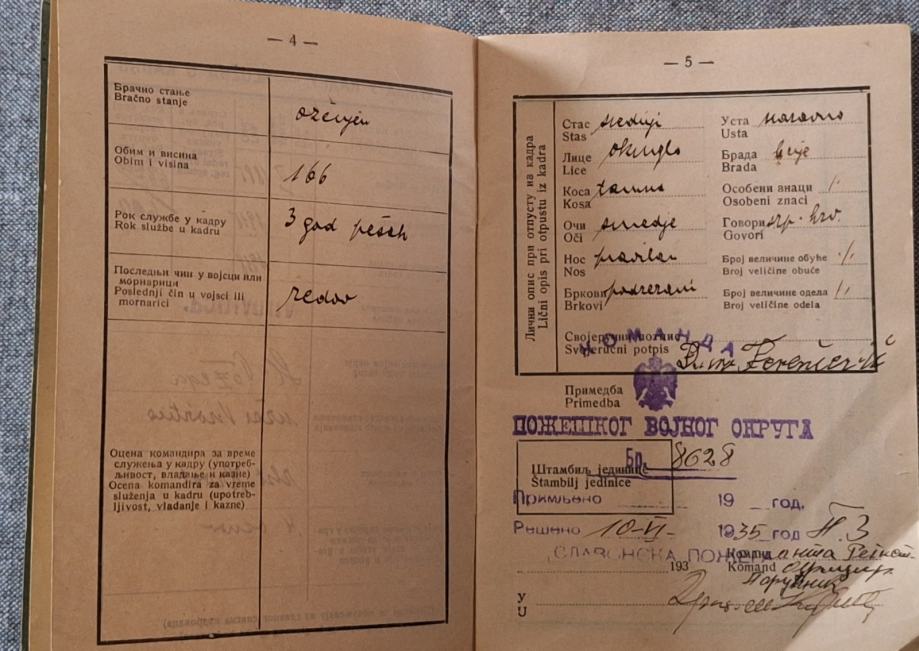 — 4 —
Брачно стање
Bračno stanje
oženjen
Обим и висина
Obim i visina
166
Рок службе у кадру
Rok službe u kadru
3 god pešak
Последњи чин у војсци или
морнарици
Poslednji čin u vojsci ili
mornarici
redov
Оцена командира за време
служења у кадру (употреб-
љивост, владање и казне)
Ocena komandira za vreme
služenja u kadru (upotreb-
ljivost, vladanje i kazne)
— 5 —
Лични опис при отпусту из кадра
Lični opis pri otpustu iz kadra
Стас
Stas
srednji
Лице
Lice
okruglo
Коса
Kosa
tamna
Очи
Oči
smedje
Нос
Nos
pravilan
Бркови
Brkovi
podrezani
Уста
Usta
naravno
Брада
Brada
brije
Особени знаци
Osobeni znaci
/.
Говори
Govori
srp. hrv.
Број величине обуће
Broj veličine obuće
/.
Број величине одела
Broj veličine odela
/.
Својеручни потпис
Svojeručni potpis
КОМАНДА
Примедба
Primedba
ПОЖЕШКОГ ВОЈНОГ ОКРУГА
Бр. 8628
Штамбиљ јединице
Štambilj jedinice
Примљено 19 год.
Решено 10-VI- 1935 год
СЛАВОНСКА ПОЖЕГА
193
Команд
Komand
У
U